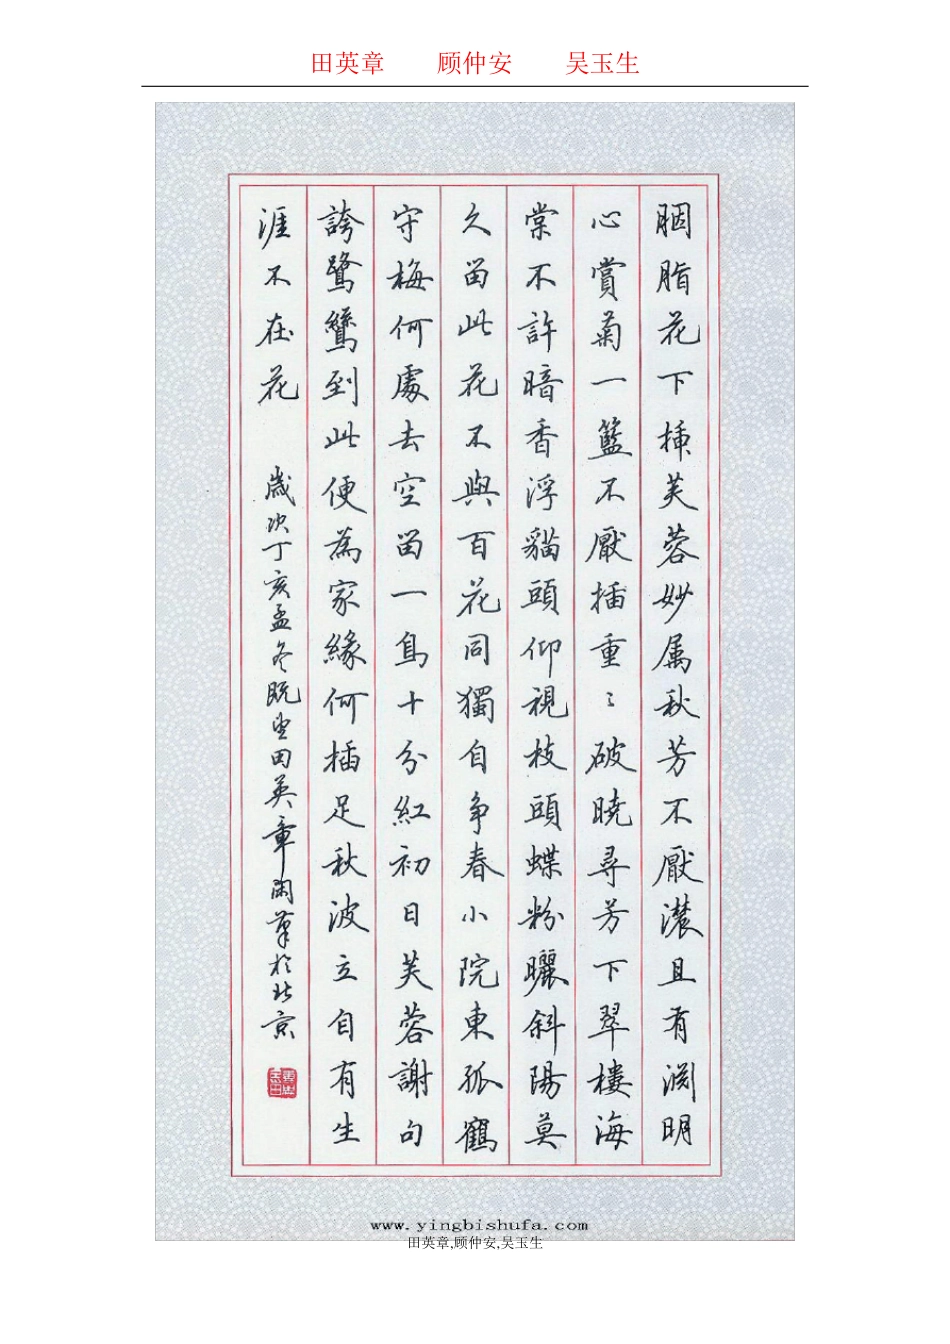 田英章 顾仲安 吴玉生
胭脂花下插芙蓉妙属秋芳不厭濃且有渊明
心賞菊一籃不厭插重〻破曉尋芳下翠樓海
棠不許暗香浮貓頭仰視枝頭蝶粉曬斜陽莫
久留此花不與百花同獨自争春小院東孤鶴
守梅何處去空留一鳥十分紅初日芙蓉謝句
誇鷺鷥到此便為家緣何插足秋波立自有生
涯不在花
歲次丁亥孟冬既望田英章閑筆於北京
www.yingbishufa.com
田英章,顾仲安,吴玉生